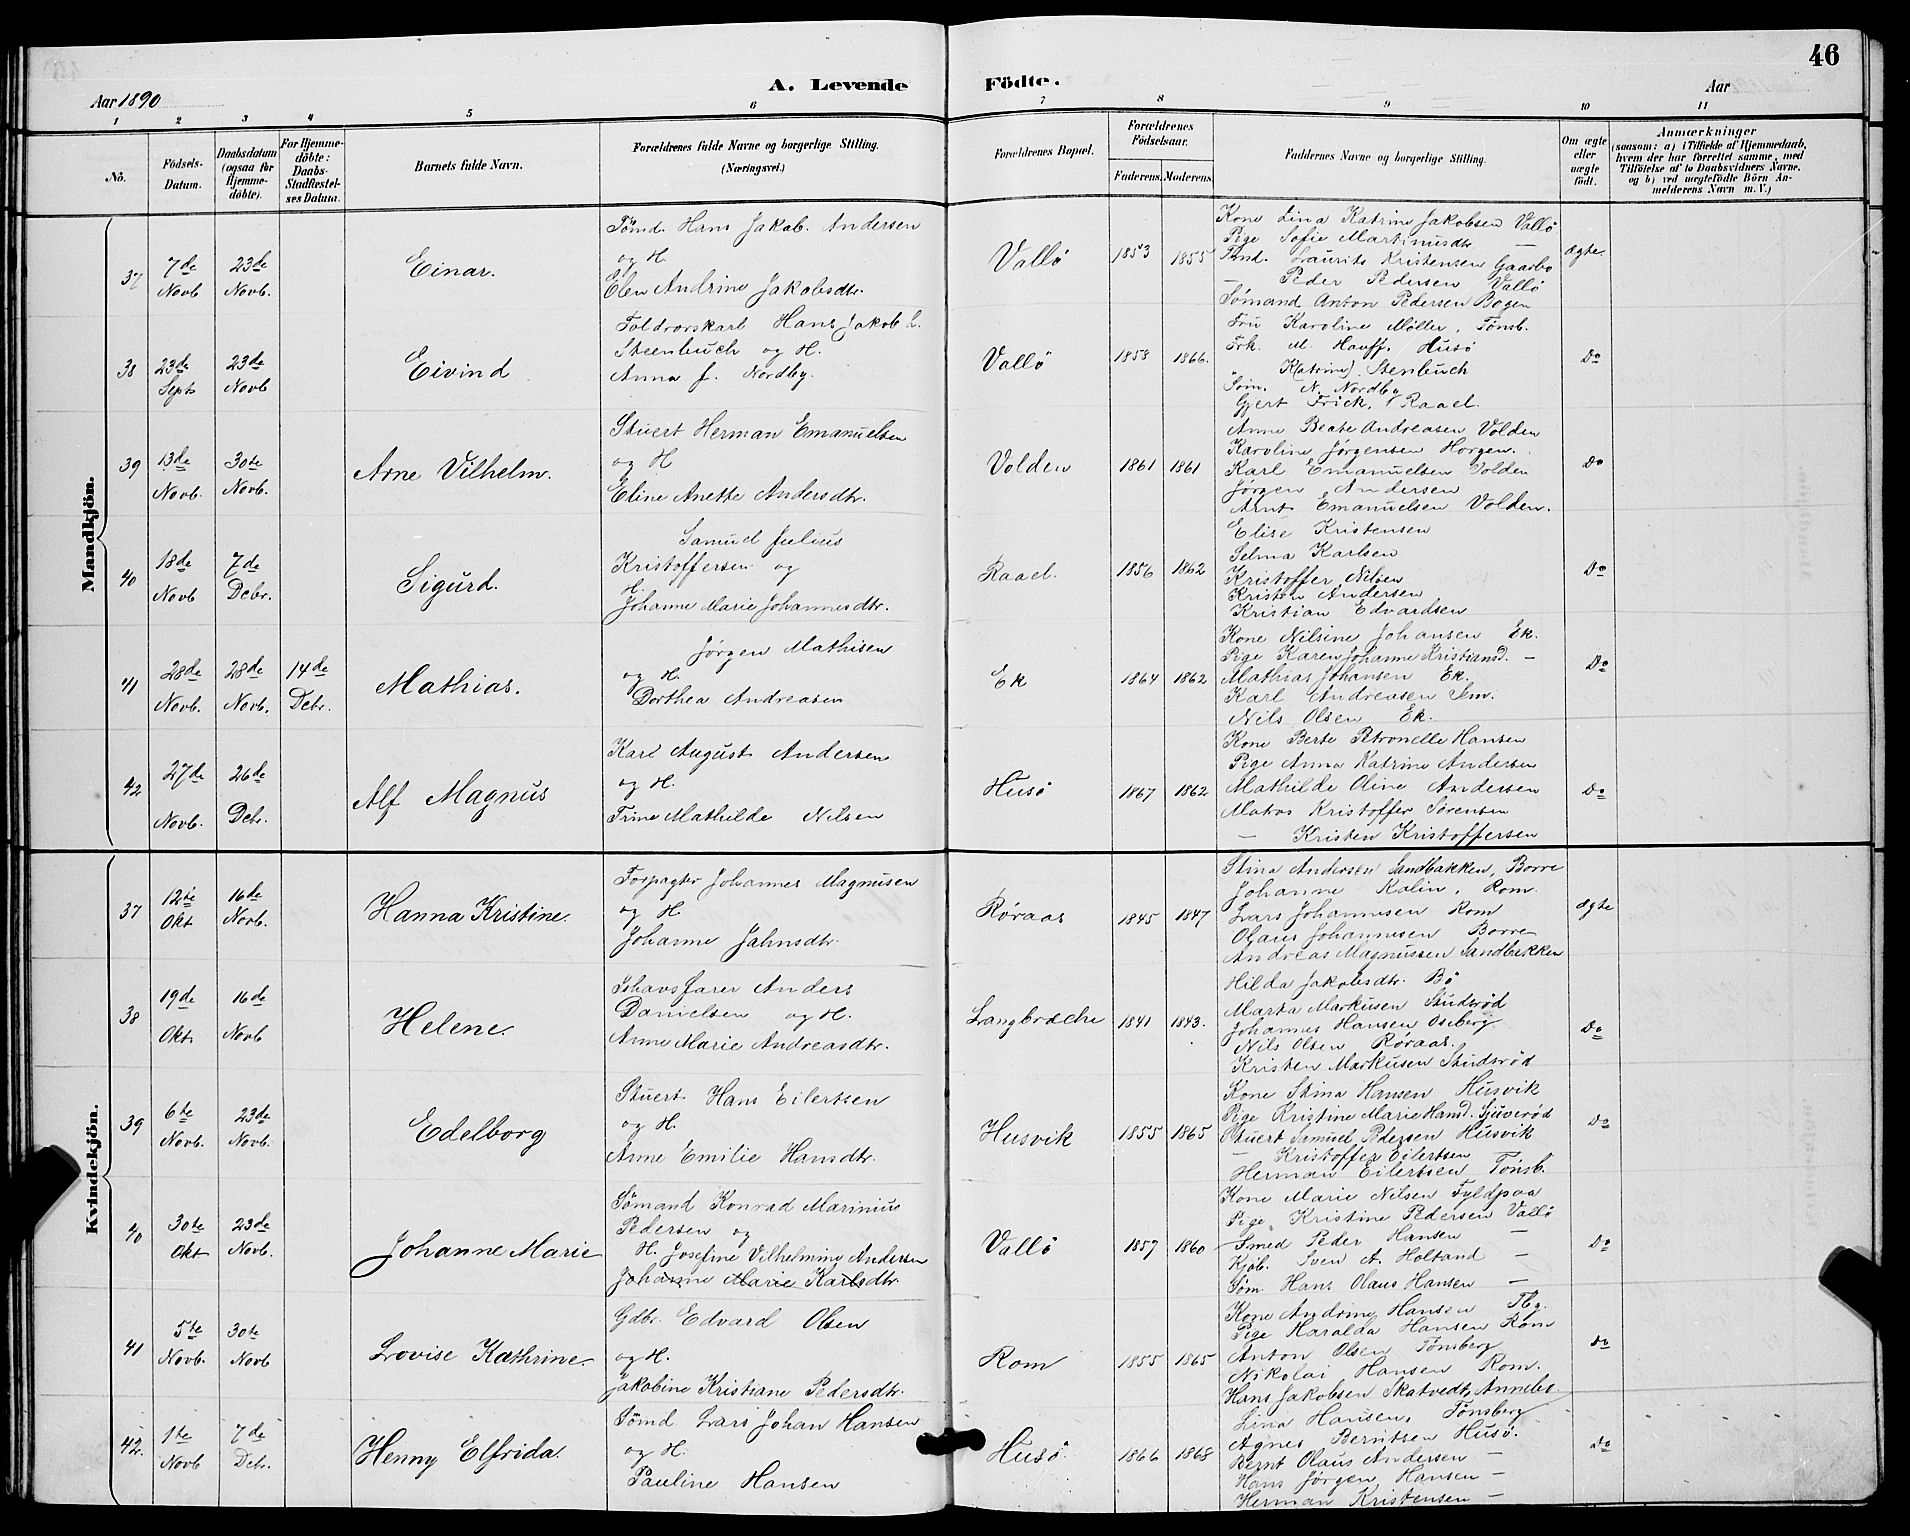 46
Aar 1890
A. Levende Födte.
Aar
1 2 3 4 5 6 7 8 9 10 11
No.
Födsels-Datum.
Daabsdatum (ogsaa for Hjemme-döbte).
For Hjemme-döbte: Daabs-Stadfæstel-ses Datum.
Barnets fulde Navn.
Forældrenes fulde Navne og borgerlige Stilling.
(Næringsvei.)
Forældrenes Bopæl.
Forældrenes Födselsaar.
Faderens. Moderens.
Faddernes Navne og borgerlige Stilling.
Om ægte eller uægte födt.
Anmærkninger
(saasom: a) i Tilfælde af Hjemmedaab,
hvem der har forrettet samme, med
Tilföielse af to Daabsvidners Navne,
og b) ved uægtefödte Börn An-
melderens Navn m. V.)
Mandkjön.
37
7de Novb
23de Novb.
Einar.
Sømd. Hans Jakob Andersen
og H.
Elen Andrine Jakobsdtr.
Vallö
1853 1855
Kone Lina Katrine Jakobsen Vallö
Pige Sofie Martinusdtr. —
Tmd. Laurits Kristensen Gaarbo
— Peder Pedersen Vallö
Sømand Anton Pedersen Bogen
ægte.
38
23de Sept
23de Novb
Eivind
Toldrorskarl Hans Jakob L.
Steenbuch og H.
Anna J. Nordby.
Vallö
1853 1866.
Fru Karoline Møller, Tønsb.
Frk. M. Hauff. Husö
K(atrine) Stenbuch
Søm. N. Nordby
Gjert Frick, Raael.
Do
39
13de Novb.
30te Novb.
Arne Vilhelm.
Stuert Herman Emanuelsen
og H
Eline Anette Andersdtr.
Volden
1861 1861
Anne Beate Andreasen Volden
Karoline Jørgensen Horgen.
Karl Emanuelsen Volden
Jørgen Andersen
Arnt Emanuelsen Volden.
Do
40
18de Novb
7de Debr.
Sigurd.
Samuel Julius
Kristoffersen og
H.
Johanne Marie Johannesdtr.
Raael.
1856 1862
Elise Kristensen
Selma Karlsen
Kristoffer Nilsen
Kristen Andersen
Kristian Edvardsen
Do
41
28de Novb.
28de Novb.
14de Debr.
Mathias.
Jørgen Mathisen
og H.
Dorthea Andreasen
Ek
1864 1862
Kone Nilsine Johansen Ek.
Pige Karen Johanne Kristiansd. —
Mathias Johansen Ek.
Karl Andreasen Sem.
Nils Olsen Ek.
Do
42
27de Novb.
26de Debr.
Alf Magnus
Karl August Andersen
og H.
Trine Mathilde Nilsen
Husö
1867 1862
Kone Berte Petronelle Hansen
Pige Anna Katrine Andersen
Mathilde Oline Andersen
Matros Kristoffer Sørensen
— Kristen Kristoffersen
Do
Kvindekjön.
37
12te Okt
16de Novb.
Hanna Kristine
Forpagter Johannes Magnusen
og H
Johanne Jahnsdtr.
Røraas
1845 1847
Stina Andersen Sandbakken, Borre
Johanne Kalin, Rom.
Lars Johannesen Rom
Olaus Johannesen Borre
Andreas Magnussen Sandbakken
ægte
38
19de Okt
16de Novb
Helene.
Ishavsfarer Anders
Danielsen og H.
Anne Marie Andreasdtr.
Langbrække
1841 1843.
Hilda Jakobsdtr. Bö
Marta Markusen Studsrød
Johannes Hansen Oseberg
Nils Olsen Røraas.
Kristen Markusen Studsrød
Do
39
6te Novb.
23de Novb.
Edelborg
Stuert Hans Eilertsen
og H.
Anne Emilie Hansdtr.
Husvik
1855 1865
Kone Stina Hansen Husvik
Pige Kristine Marie Hansd. Sjuverød
Stuert Samuel Pedersen Husvik
— Kristoffer Eilertsen
Herman Eilertsen Tønsb.
Do
40
30te Okt
23de Novb.
Johanne Marie
Sømand Konrad Marinius
Pedersen og
H. Josefine Vilhelmine Andersen
Johanne Marie Karlsdtr.
Vallö
1857 1860
Kone Marie Nilsen Fyldpaa
Pige Kristine Pedersen Vallö
Smed Peder Hansen —
Kjøb. Sven A. Holtand —
Søm. Hans Olaus Hansen —
Do
41
5te Novb.
30te Novb
Lovise Kathrine
Gdbr. Edvard Olsen
og H.
Jakobine Kristiane Pedersdtr.
Rom
1855 1865
Kone Andrine Hansen Tbg.
Pige Haralda Hansen Rom
Anton Olsen Tønsberg
Nikolai Hansen Rom.
Hans Jakobsen Skatvedt, Annebo
Do
42.
1te Novb
7de Debr.
Henny Elfrida.
Sömd Lars Johan Hansen
og H.
Pauline Hansen
Husö
1866 1868
Lina Hansen, Tønsberg
Agnes Berntsen Husö.
Bernt Olaus Andersen —
Hans Jørgen Hansen —
Herman Kristensen —
Do